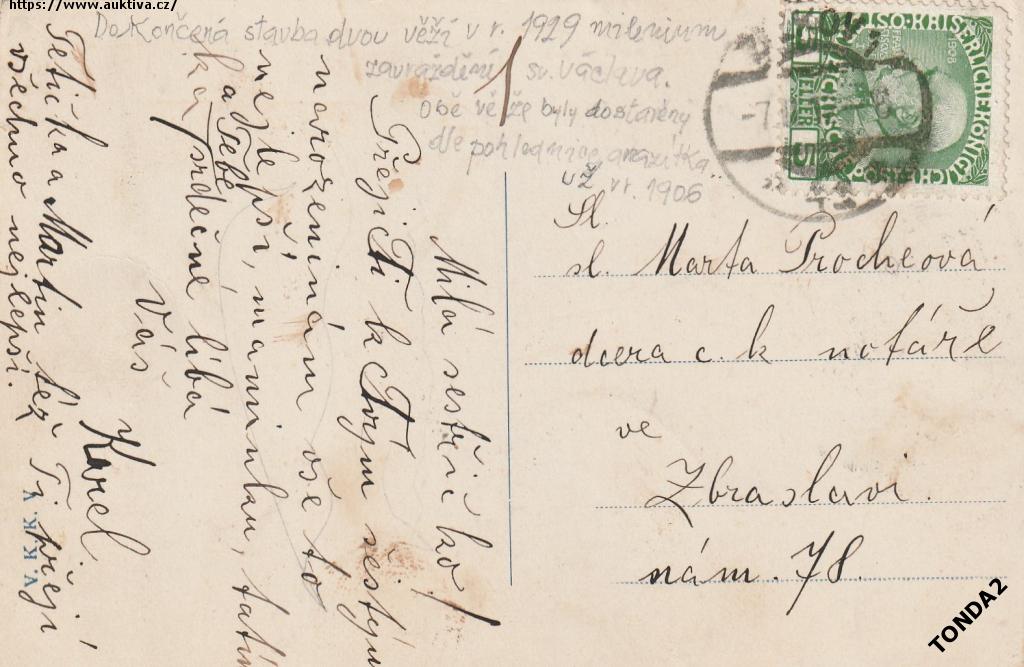 https://www.auktiva.cz/
Dokončená stavba dvou věží v r. 1929 milenium
zavraždění sv. Václava.
Obě věže byly dostavěny
dle pohlednice
už v r. 1906
Milá sestřičko!
Přeji Ti k Tvým šestým
narozeninám vše to
nejlepší, maminku, tatín
ka a Tebe srdečně líbá
Váš
Karel
Tetička a Martin též Ti přejí
všechno nejlepší.
V. K. K. V.
Sl.
sl. Marta Procheová
dcera c. k notáře
ve
Zbraslavi.
nám. 78.
1908
5 HELLER 5
TONDA2